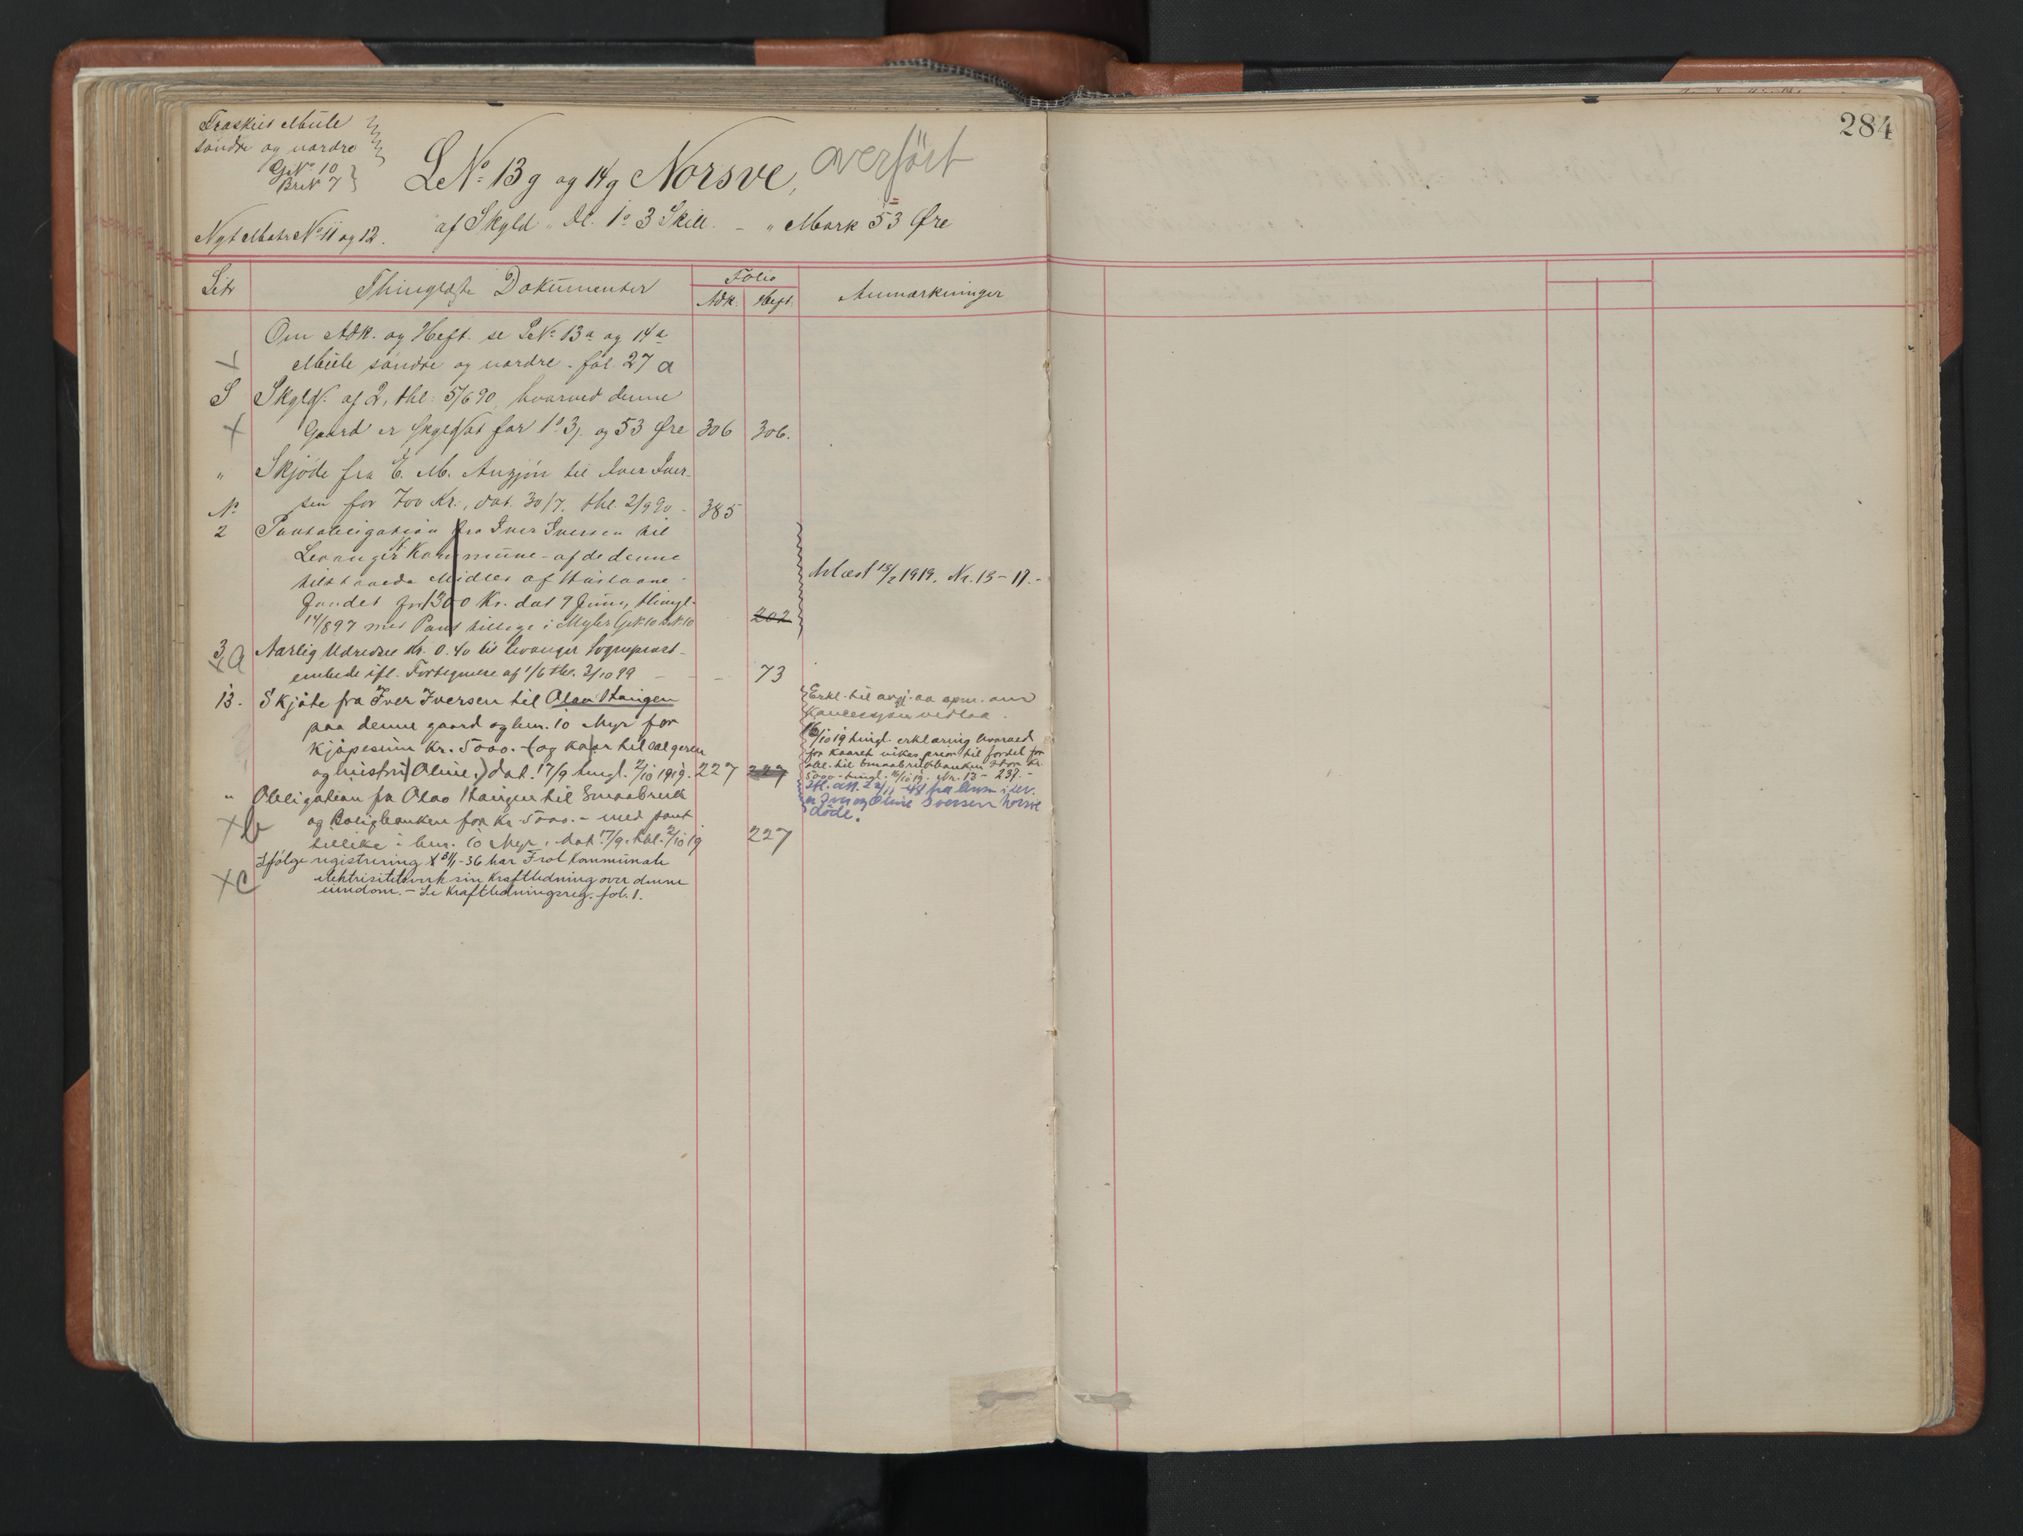 284
Fraskilt Mule
søndre og nordre
GNo 10
BrNo 7
LNo 13g og 14g Norsve, overført
Nyt Matr No 11 og 12.
af Skyld " Dl. 1o 3 Skill. - " Mark 53 Øre
Litr
Thinglæste Dokumenter
Folio
Adk. Heft.
Anmærkninger
Om Adk. og Heft. se LNo 13a og 14a
Mule søndre og nordre - fol. 27a
S Skyldf. af 2, thl. 5/6 90, hvorved denne
Gaard er skyldsat for 1o 3 og 53 Øre 306 306.
" Skjøde fra E. M. Angjön til Iver Iver-
sen for 700 Kr., dat. 30/7, thl. 2/9 90 - 385
No
2 Pantobligation fra Iver Iversen til
Levanger Kommune - af de denne
tilstaaede Midler af Huslaane-
fondet for 1300 Kr. dat 9 Juni, thingl.
14/897 med Pant tillige i Myhr GNo 10 BNo 10 202
Avlæst 13/2 1919. Nr. 13 - 17.-
3 a Aarlig Udredsel Kr. 0.40 til Levanger Sogneprest-
embede ifl. Fortegnelse af 1/6 thl. 3/10 99 - - - 73
13. Skjøte fra Iver Iversen til Olav Stangen
paa denne gaard og bnr. 10 Myr for
kjøpesum kr. 5000.- (og kaar til sælgeren
og hustru Oline.) dat. 17/9 tingl. 2/10 1919. 227 227
Erkl. til avgj. av spm. om
Koncessjon vedlaa.
16/10 19 tingl. erklæring hvorved
for kaaret vikes prior. til fordel for
obl. til Smaabrukbanken stor kr.
5000 - tingl. 16/10 19. Nr. 13 - 237.-
er Iver og Oline Iversen Norsve
døde.
" Obligation fra Olav Stangen til Smaabruk
b og Boligbanken for kr. 5000.- med pant
tillike i bnr. 10 Myr, dat. 17/9, tbl. 2/10 19 227
Ifølge registrering 31/1-36 har Frol Kommunale
c elektrisitetsverk sin kraftledning over denne
eiendom. - Se Kraftledningsreg. fol. 1.